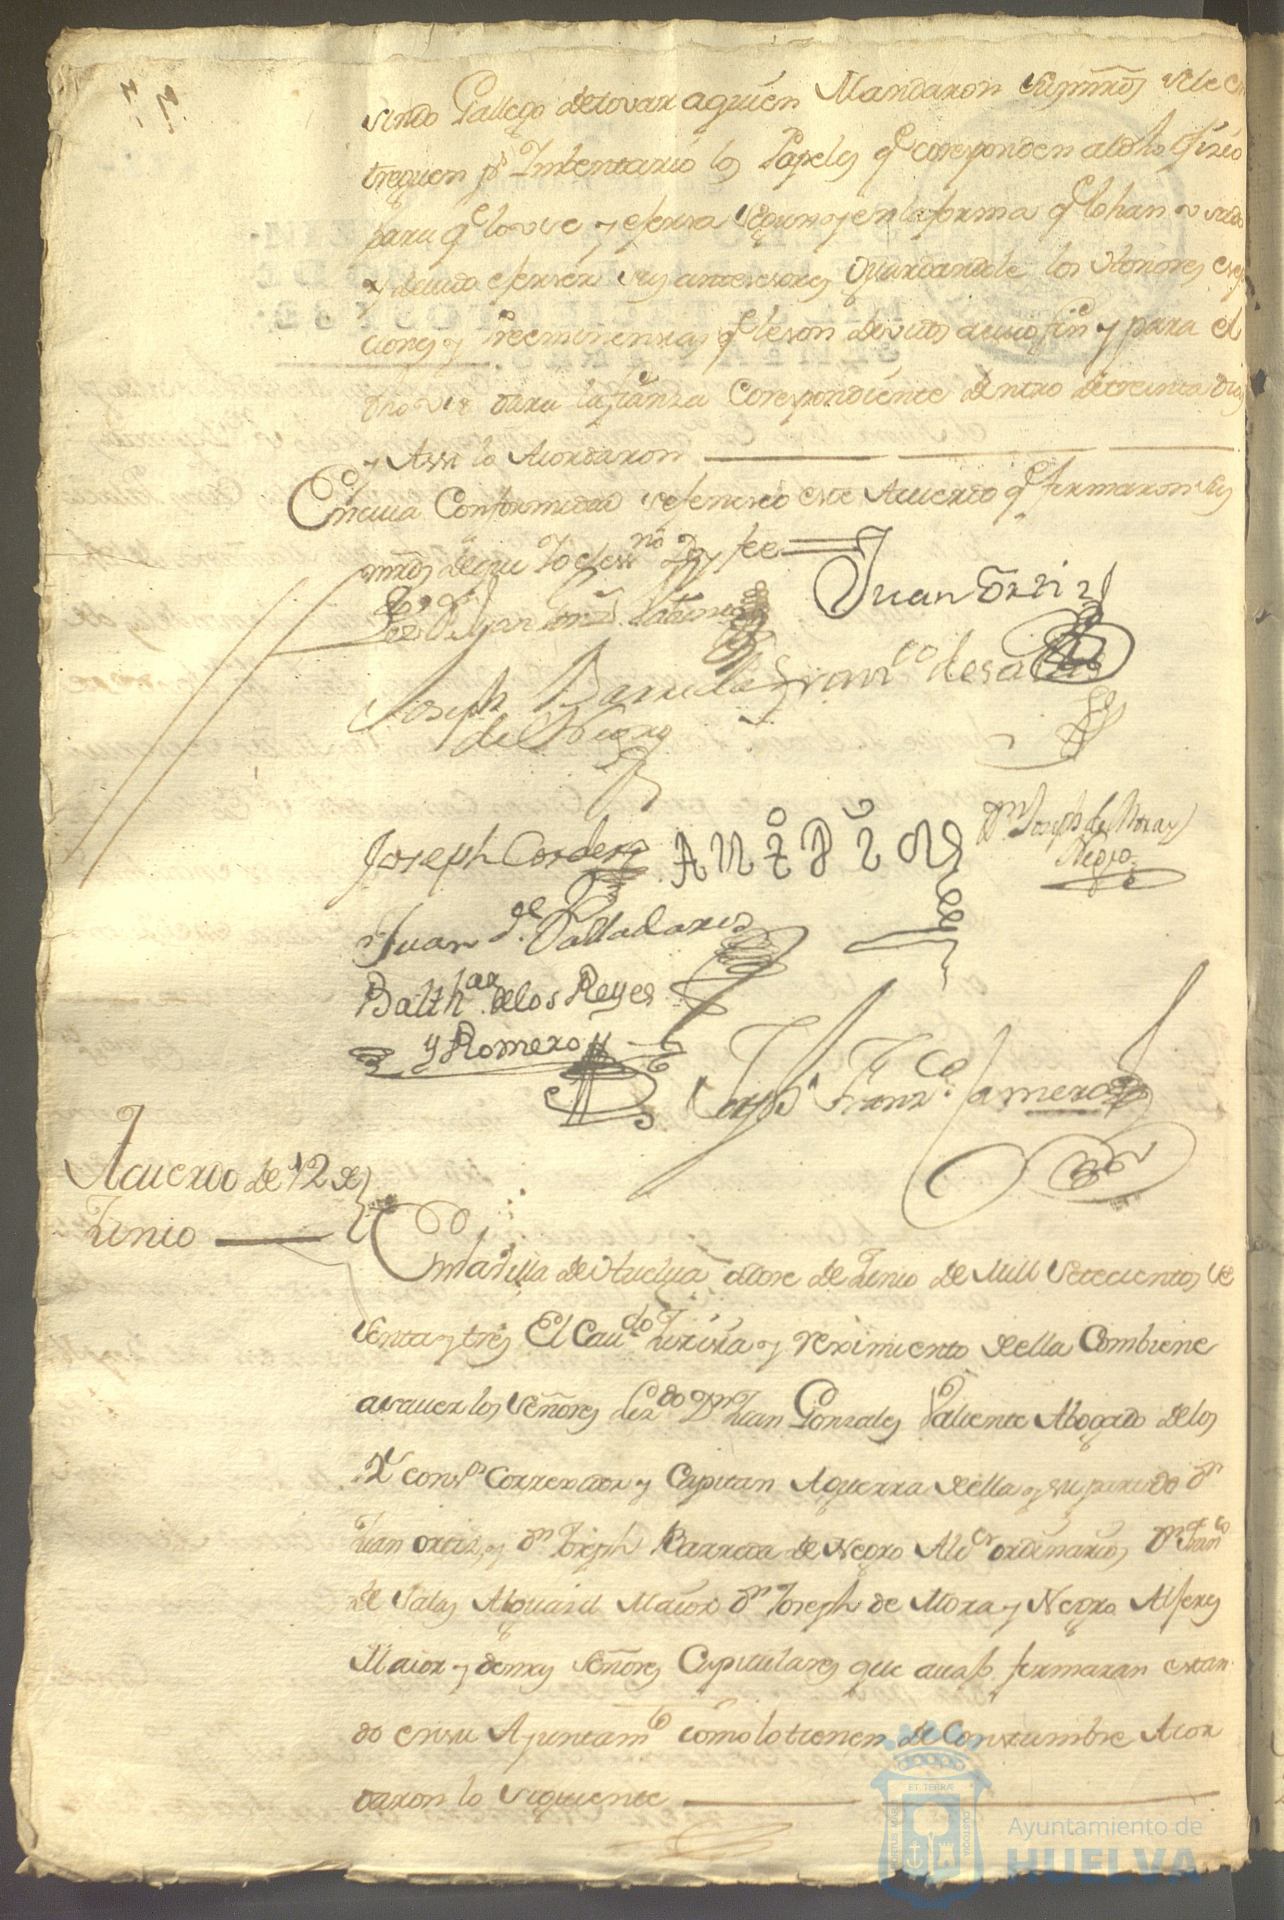 sindo Gallego de tovar aquien Mandaron sus mrds sele en
treguen pr Imbentario los Papeles q coresponden aldho ofizio
para q lo use y esersa segun y en la forma q lo han usado
y devido eserser sus antesesores Guardandole los Honores exsep
ciones y Preeminensias q le son devidos a cuio fin y para el
dho uso dara la fianza Corespondiente dentro de treinta dias
y Assi lo Acordaron
En cuia Conformidad se fenesio este Acuerdo q firmaron sus
mrds de que Yo el essno Doy fee
Juan Ortiz
Lizdo Dn Juan Gonz. Valiente
Joseph Barreda
de Negro
Franco de Salas
Joseph Cordero
Dn Joseph de Mora y
Negro
Juan de Valladares
Balthar de los Reyes
y Romero
Joseph Franco Camero
Acuerdo de 12 de
Junio
En la villa de Huelva a doce de Junio de Mill Setecientos se
senta y tres El Cavdo Justisia y reximiento de ella Combiene
a saver los Señores Lizdo Dn Juan Gonzales Valiente Abogado de los
Rs consos Correxidor y Capitan Aguerra de ella y su partido Dn
Juan ortiz, y Dn Joseph Barreda de Negro Alces ordinarios Dn Franco
de Salas Alguasil Maior Dn Joseph de Mora y Negro Alferes
Maior y demas Señores Capitulares que avajo firmaran estan
do en su Ayuntamto como lo tienen de Constumbre Acor
daron lo siguiente
ET TERRÆ
Ayuntamiento de
HUELVA